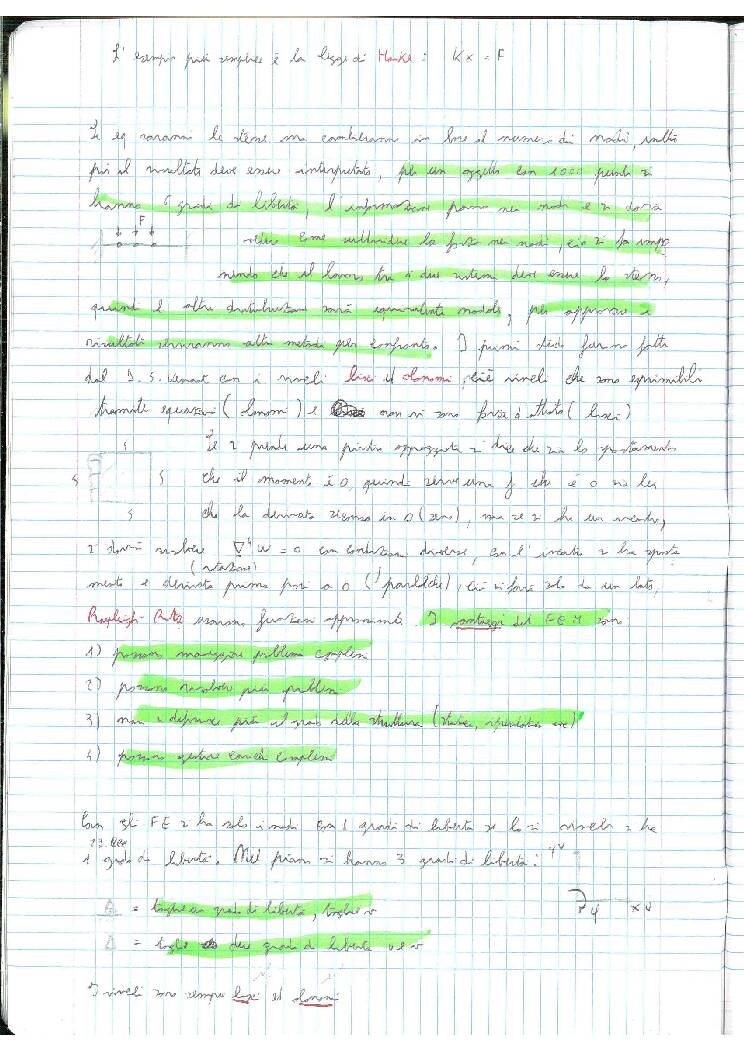 L'esempio più semplice è la legge di Hooke: Kx = F
Le eq saranno le stesse ma cambieranno in base al numero di nodi,
poi il risultato deve essere interpretato, per un oggetto con 1000 punti si
hanno 6 gradi di libertà, l'informazione passa nei nodi e si dovrà
F
vedere come suddividere la forza nei nodi, ciò si fa
che il lavoro tra i due sistemi deve essere lo stesso,
quindi l'altra distribuzione sarà equivalente nodale, per approvare i
risultati serviranno altri metodi per confronto. I primi studi furono fatti
dal con i vincoli lisci ed olonomi, cioè vincoli che sono esprimibili
tramite equazioni (olonomi) e non vi sono forze d'attrito (lisci)
Se si prende una piastra appoggiata si dice che sia lo spostamento
che il momento è 0, quindi serve una f che è 0 sia lei
che la derivata seconda in 0 (zero), ma se si ha un incastro,
si dovrà risolvere ∇⁴w = 0 con condizioni diverse, con l'incastro si ha sposta
(rotazione)
mento e derivata prima pari a 0, ciò si farà solo da un lato,
Rayleigh-Ritz usarono funzioni approssimanti. I vantaggi del FEM sono
1) possono maneggiare problemi complessi
2) possono risolvere più problemi
3) non si definisce più il grado della struttura (statica, iperstatica ecc)
4) possono gestire carichi complessi
Con gli FE si ha solo i nodi con 1 grado di libertà se lo si vincola si ha
1 grado di libertà. Nel piano si hanno 3 gradi di libertà:
= toglie un grado di libertà, toglie v
= toglie due gradi di libertà u e v
I vincoli sono sempre lisci ed olonomi